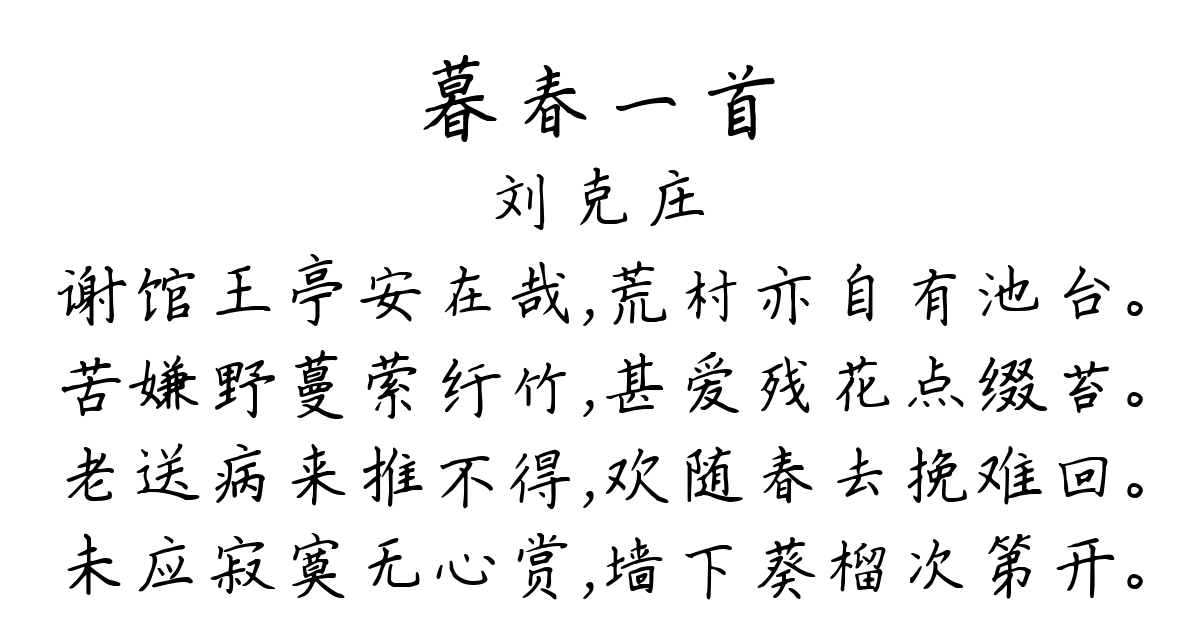 暮春一首
刘克庄
谢馆王亭安在哉,荒村亦自有池台。
苦嫌野蔓萦纡竹,甚爱残花点缀苔。
老送病来推不得,欢随春去挽难回。
未应寂寞无心赏,墙下葵榴次第开。